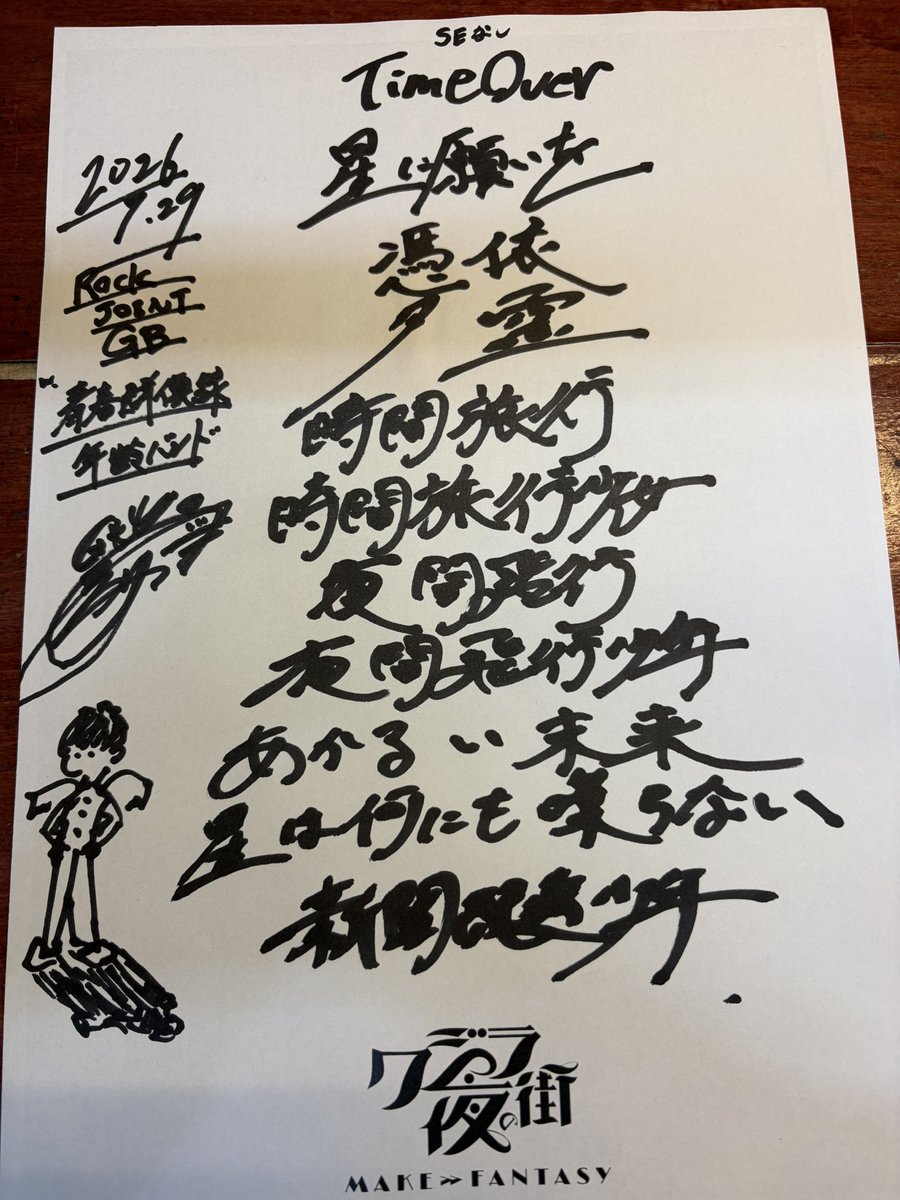 SEなし
TimeOver
星に願いを
憑依
夕霊
時間旅行
時間旅行少女
夜間飛行
夜間飛行少年
あかるい未来
星は何にも喋らない
新聞配達少年
2026
7.29
Rock
JOINT
GB
青春群像録
年齢バンド
クジラ夜の街
MAKE>>FANTASY